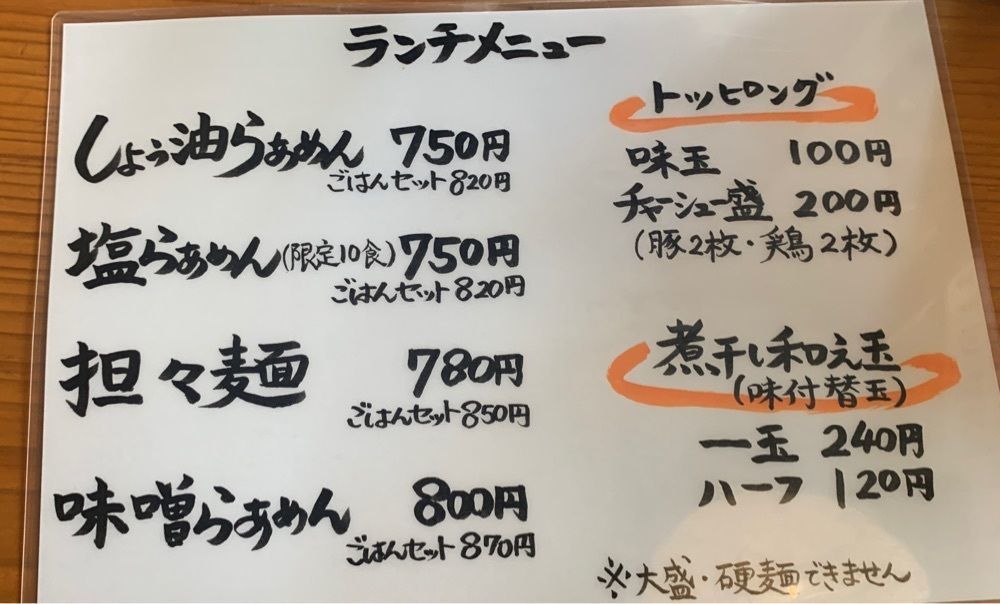 ランチメニュー
しょう油らぁめん 750円
ごはんセット820円
塩らぁめん(限定10食)750円
ごはんセット820円
担々麺 780円
ごはんセット850円
味噌らぁめん 800円
ごはんセット870円
トッピング
味玉 100円
チャーシュー盛 200円
(豚2枚・鶏2枚)
煮干し和え玉
(味付替玉)
一玉 240円
ハーフ 120円
※大盛・硬麺できません